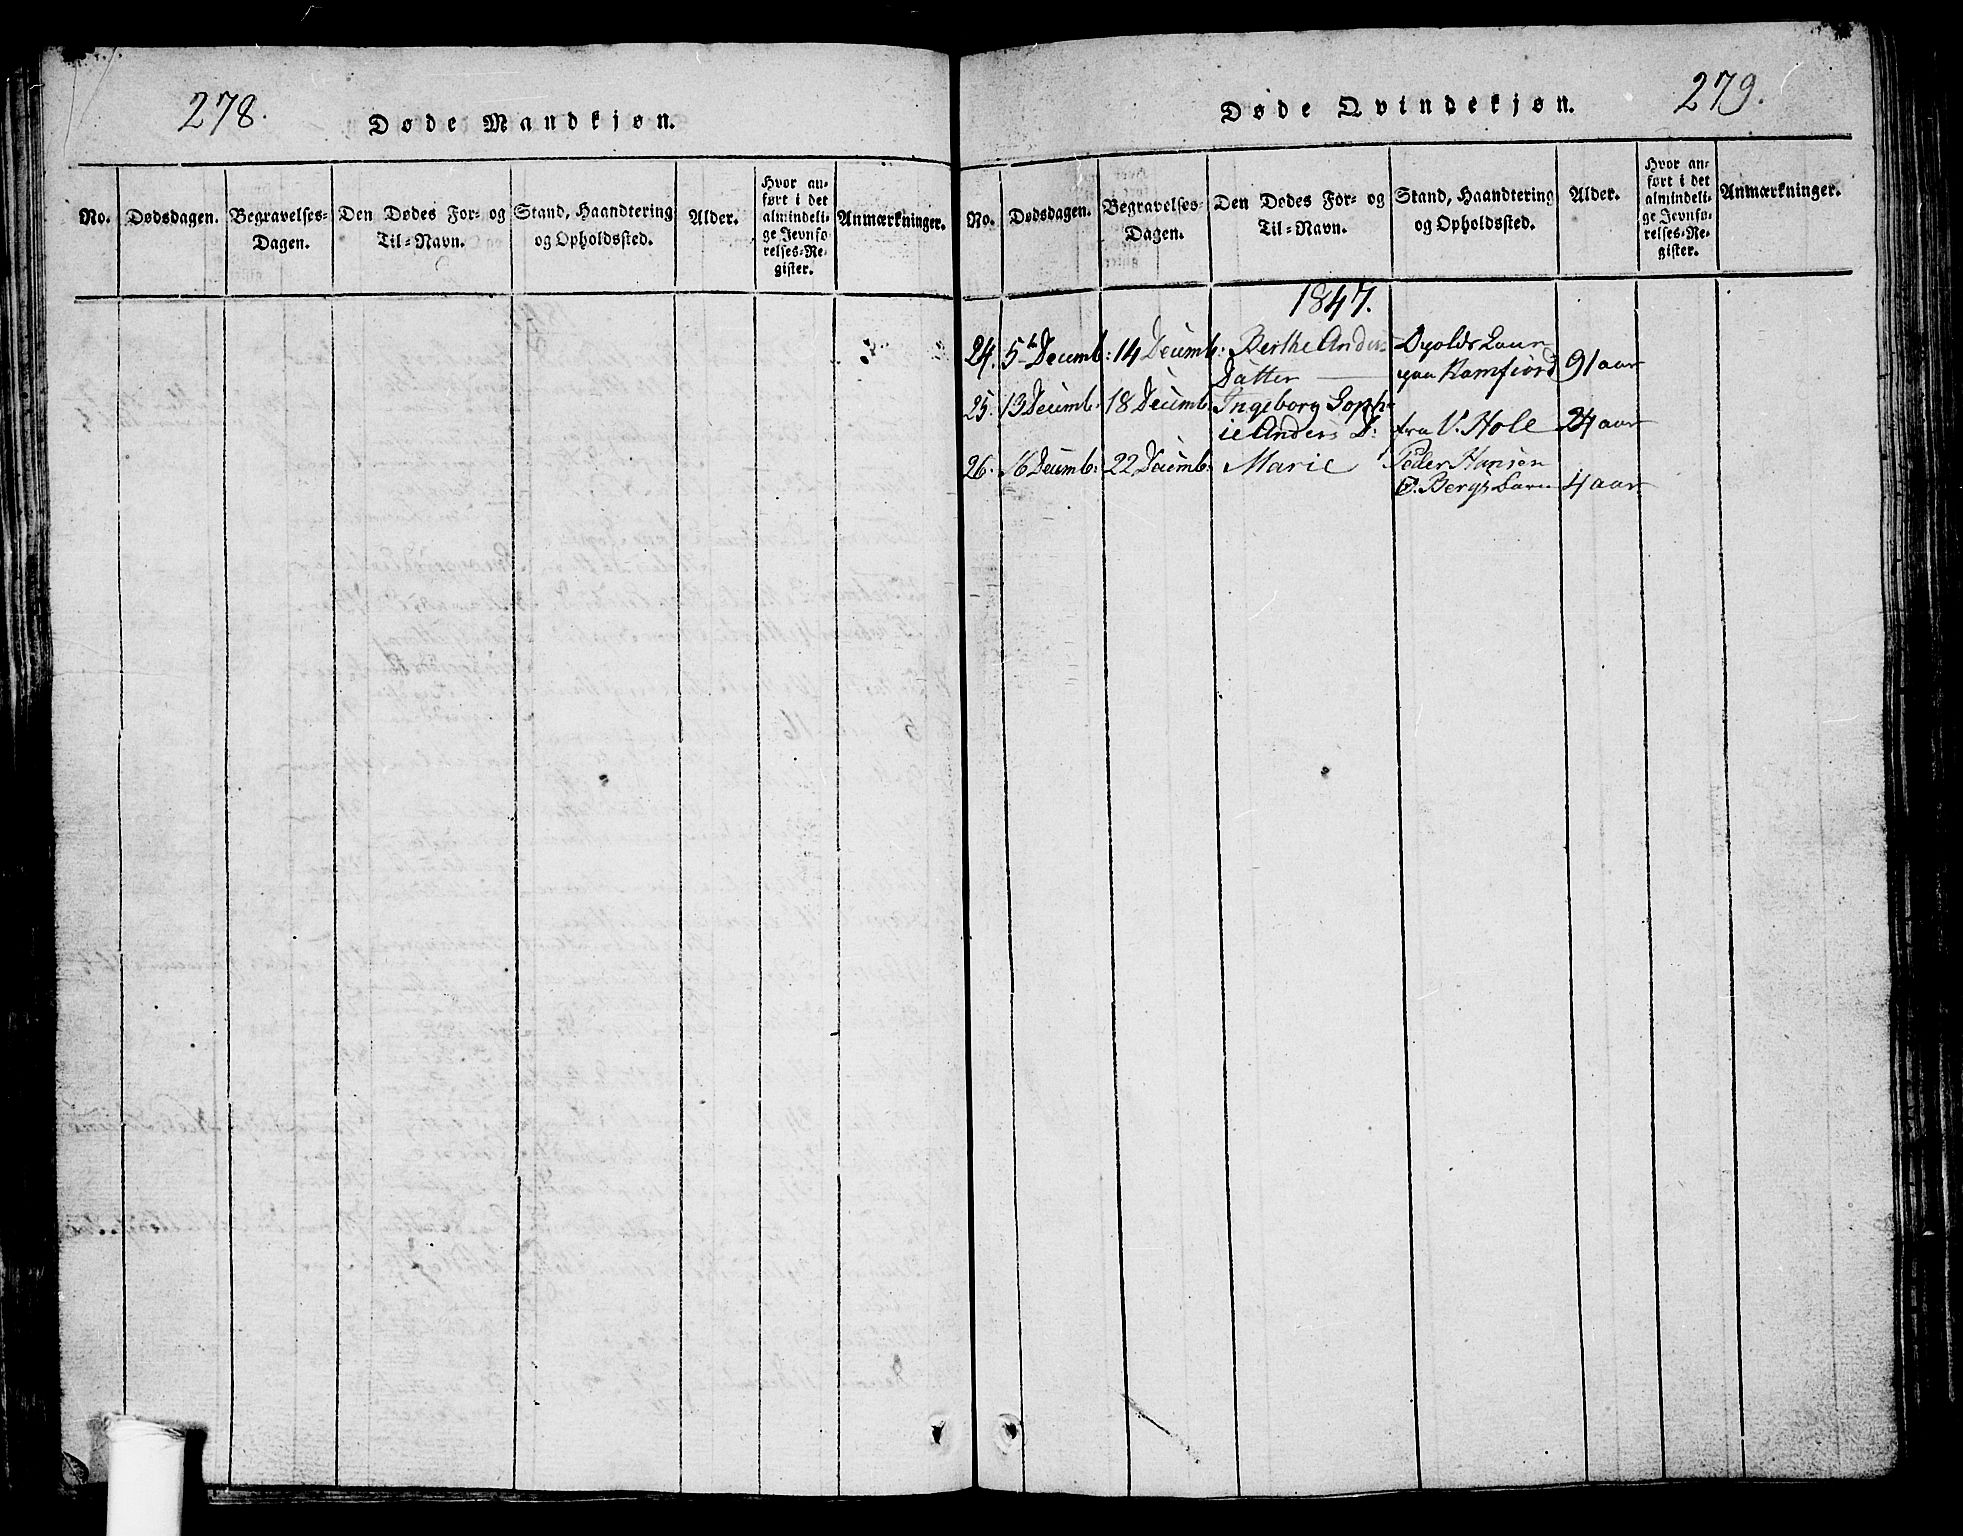 278.
Døde Mandkjøn.
No.
Dødsdagen.
Begravelses-
Dagen.
Den Dødes For- og
Til-Navn.
Stand, Haandtering
og Opholdssted.
Alder.
Hvor an-
ført i det
almindeli-
ge Jevnfø-
relses-Re-
gister.
Anmærkninger.
Døde Qvindekjøn.
279.
No.
Dødsdagen.
Begravelses-
Dagen.
Den Dødes For- og
Til-Navn.
Stand, Haandtering
og Opholdssted.
Alder.
Hvor an-
ført i det
almindeli-
ge Jevnfø-
relses-Re-
gister.
Anmærkninger.
1847.
24. 5te Decemb: 14 Decemb: Berthe Anders
Datter 91 aar
25. 13 Decemb: 18 Decemb: Ingeborg Soph-
ie Anders D: fra V. Hole 24 aar
26. 16 Decemb: 22 Decemb: Marie Peder Hansen
Berg 4 aar